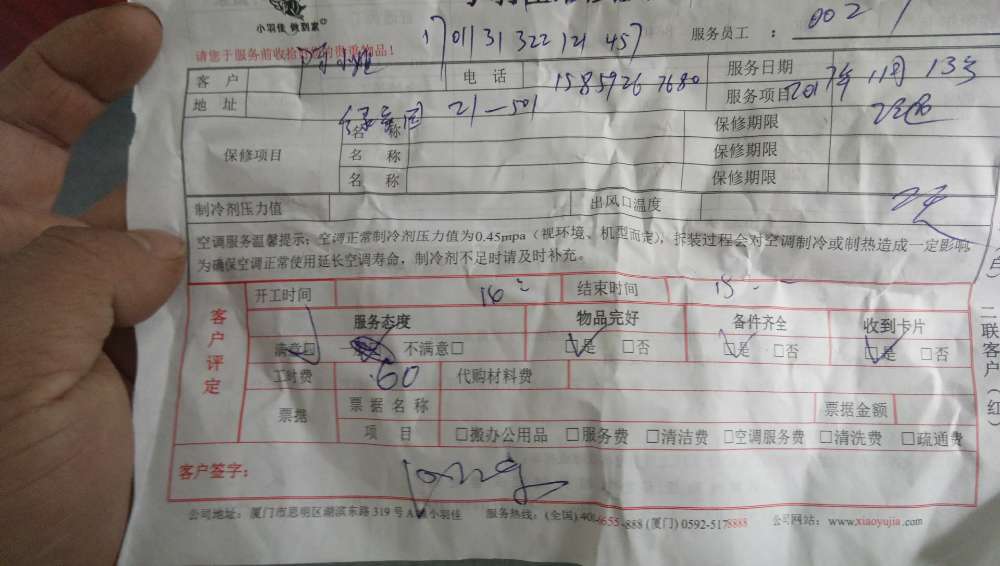 小羽佳 做到家
服务员工： 002
请您于服务前收拾好您的贵重物品！
客户 电话 15859267680 服务日期 2017年11月13号
地址 21-501 服务项目
名称 保修期限
保修项目 名称 保修期限
名称 保修期限
制冷剂压力值 出风口温度
空调服务温馨提示：空调正常制冷剂压力值为0.45mpa（视环境、机型而定），拆装过程会对空调制冷或制热造成一定影响
为确保空调正常使用延长空调寿命，制冷剂不足时请及时补充。
客户评定
开工时间 结束时间
服务态度 物品完好 备件齐全 收到卡片
满意□ 不满意□ □是 □否 □是 □否 □是 □否
工时费 60 代购材料费
票据 票据名称 票据金额
项目 □搬办公用品 □服务费 □清洁费 □空调服务费 □清洗费 □疏通费
客户签字：
公司地址：厦门市思明区湖滨东路319号A 小羽佳 服务热线：(全国) 400-6655-888 (厦门) 0592-5178888 公司网站：www.xiaoyujia.com
二联客户（红）